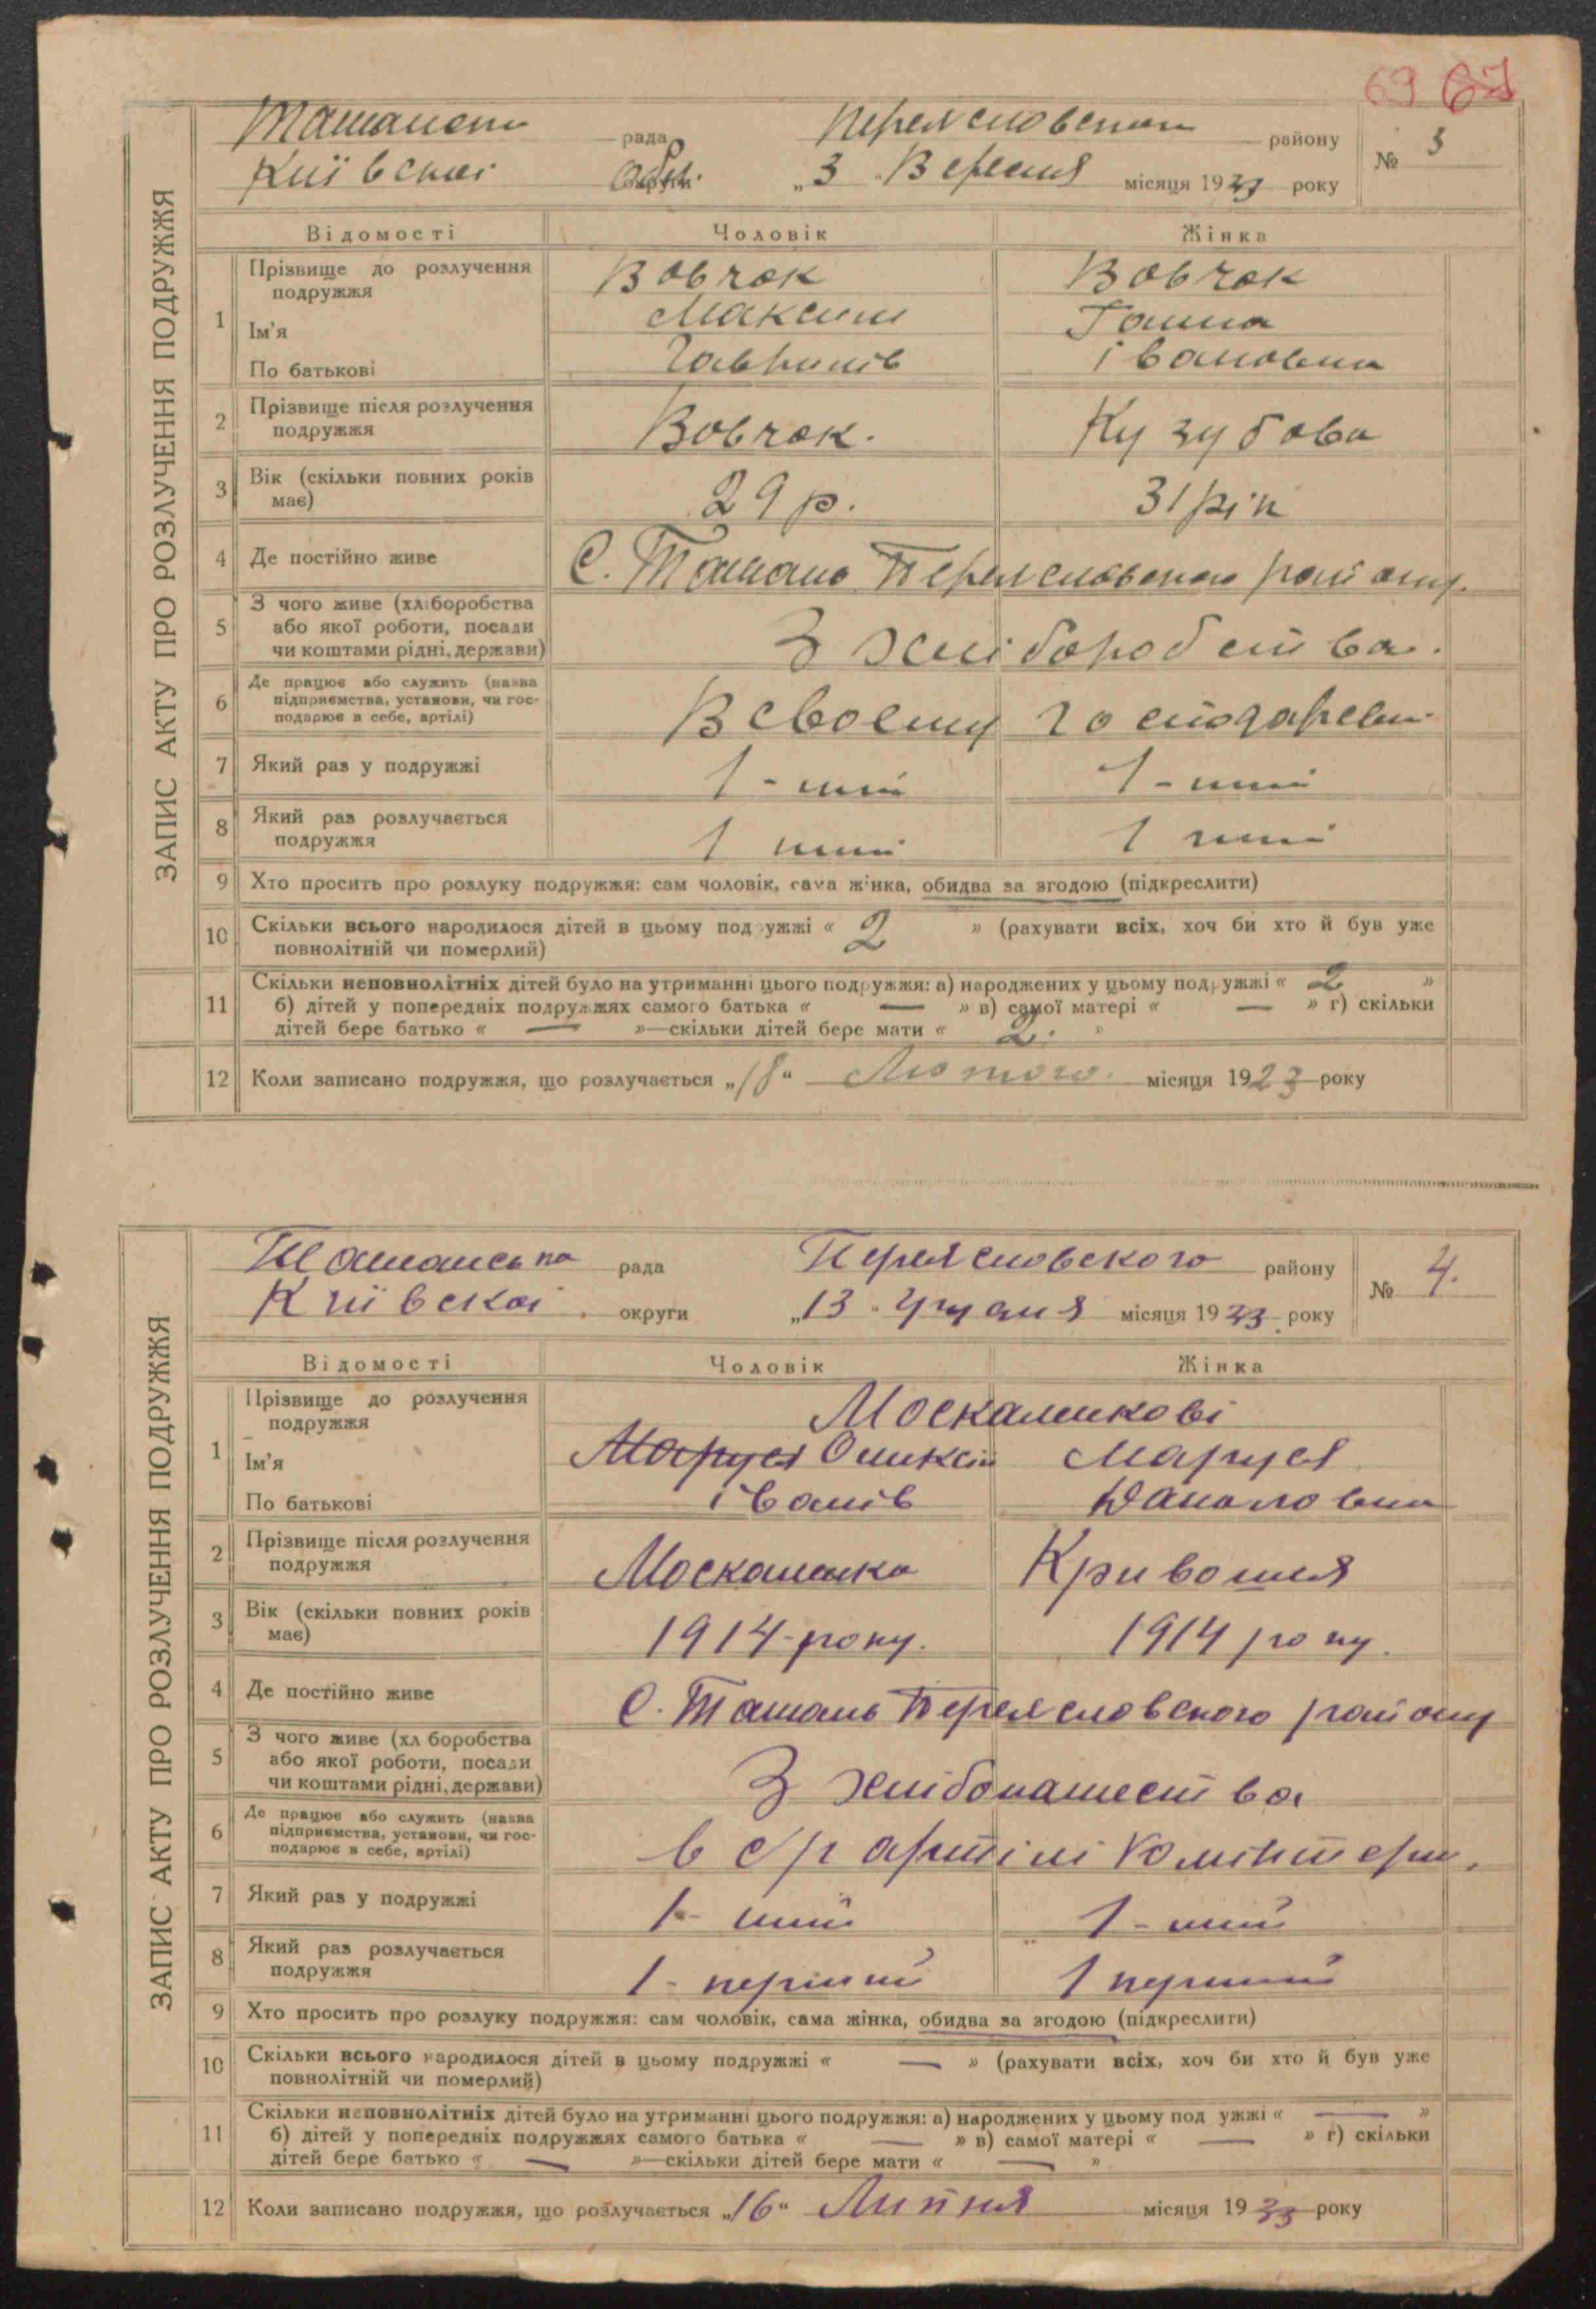 69 67
ЗАПИС АКТУ ПРО РОЗЛУЧЕННЯ ПОДРУЖЖЯ
Ташанськ рада Переяславськ району № 3
Київської обл. округи „3" Вересня місяця 1933 року
Відомості Чоловік Жінка
1 Прізвище до розлучення подружжя Вовчок Вовчок
Ім'я Максим Ганна
По батькові Гаврилів івановна
2 Прізвище після розлучення подружжя Вовчок. Кузубова
3 Вік (скільки повних років має) 29 р. 31 рік
4 Де постійно живе С. Ташань Переяславського району.
5 З чого живе (хліборобства або якої роботи, посади чи коштами рідні, держави) З хліборобства.
6 Де працює або служить (назва підприємства, установи, чи господарює в себе, артілі) В своєму господарстві
7 Який раз у подружжі 1-ший 1-ший
8 Який раз розлучається подружжя 1 ший 1 ший
9 Хто просить про розлуку подружжя: сам чоловік, сама жінка, обидва за згодою (підкреслити)
10 Скільки всього народилося дітей в цьому подружжі « 2 » (рахувати всіх, хоч би хто й був уже
повнолітній чи померлий)
11 Скільки неповнолітніх дітей було на утриманні цього подружжя: а) народжених у цьому подружжі « 2 »
б) дітей у попередніх подружжях самого батька « — » в) самої матері « — » г) скільки
дітей бере батько « — »—скільки дітей бере мати « 2. »
12 Коли записано подружжя, що розлучається „18" Лютого. місяця 1923 року
ЗАПИС АКТУ ПРО РОЗЛУЧЕННЯ ПОДРУЖЖЯ
Ташанська рада Переясловского району № 4.
Київскої округи „13" Грудня місяця 1933 року
Відомості Чоловік Жінка
1 Прізвище до розлучення подружжя Москаленкові
Ім'я Маруся Оликсій Маруся
По батькові івонів Даниловна
2 Прізвище після розлучення подружжя Москаленко Кривошия
3 Вік (скільки повних років має) 1914-року. 1914 року.
4 Де постійно живе С. Ташань Переясловского району
5 З чого живе (хліборобства або якої роботи, посади чи коштами рідні, держави) З хлібопашества
6 Де працює або служить (назва підприємства, установи, чи господарює в себе, артілі) в с/г артілі Комінтерн.
7 Який раз у подружжі 1-ший 1-ший
8 Який раз розлучається подружжя 1-перший 1 перший
9 Хто просить про розлуку подружжя: сам чоловік, сама жінка, обидва за згодою (підкреслити)
10 Скільки всього народилося дітей в цьому подружжі « — » (рахувати всіх, хоч би хто й був уже
повнолітній чи померлий)
11 Скільки неповнолітніх дітей було на утриманні цього подружжя: а) народжених у цьому подружжі « — »
б) дітей у попередніх подружжях самого батька « — » в) самої матері « — » г) скільки
дітей бере батько « — »—скільки дітей бере мати « — »
12 Коли записано подружжя, що розлучається „16" Липня місяця 1933 року